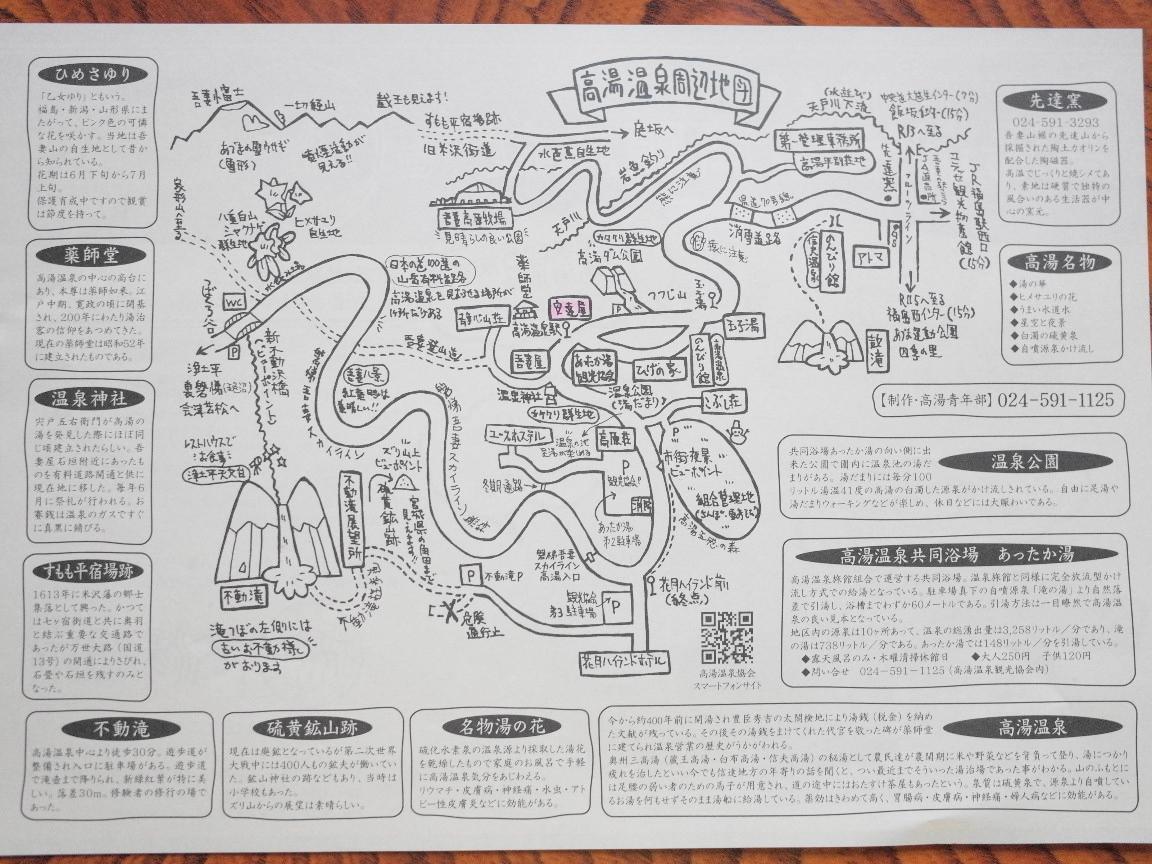 高湯温泉周辺地図
ひめさゆり
「乙女ゆり」ともいう。
福島・新潟・山形県にま
たがって、ピンク色の可憐
な花を咲かす。当地は吾
妻山の自生地として昔か
ら知られている。
花期は6月下旬から7月
上旬。
保護育成中ですので観賞
は節度を持って。
薬師堂
高湯温泉の中心の高台に
あり、本尊は薬師如来。江
戸中期、寛政の頃に開基
され、200年にわたり湯治
客の信仰をあつめてきた。
現在の薬師堂は昭和52年
に建立されたものである。
温泉神社
宍戸五右衛門が高湯の
湯を発見した際にほぼ同
じ頃建立されたらしい。吾
妻屋石垣附近にあったも
のを有料道路開通と供に
現在地に移した。毎年6
月に祭礼が行われる。お
賽銭は温泉のガスですぐ
に真黒に錆びる。
すもも平宿場跡
1613年に米沢藩の郷士
集落として興った。かつて
は七ヶ宿街道と共に奥羽
と結ぶ重要な交通路で
あったが万世大路(国道
13号)の開通によりさびれ、
石畳や石垣を残すのみと
なった。
吾妻小富士
一切経山
蔵王も見えます!
すもも平宿場跡
旧米沢街道
庭坂へ
水芭蕉自生地
岩魚釣り
天戸川下流
第一管理事務所
高湯平別荘地
先達窯
R13へ至る
飯坂インター(15分)
フルーツライン
コラッセ観光物産館
JR福島駅西口
(15分)
あづまの雪うさぎ
噴煙活動が
見える!!
家形山へ至る
八重白山
シャクナゲ
群生地
ヒメサユリ
自生地
吾妻高原牧場
見晴らしの良い公園
天戸川
カタクリ群生地
高湯ダム公園
熊に注意
県道70号線
消雪道路
のんびり館
信夫温泉
アトマ
R115へ至る
福島西インター(15分)
あづま運動公園
四季の里
鼓滝
日本の道100選の
山岳有料道路
高湯温泉を見わたせる場所が
1ヶ所だけある
薬師堂
安達屋
つつじ山
玉子湯
静心山荘
高湯温泉駅
吾妻屋
あったか湯
観光協会
ひげの家
のんびり館
温泉神社
温泉公園
(湯だまり)
こぶし荘
カタクリ群生地
ユースホステル
高原荘
WC
P
新不動沢橋
(ビューポイント)
浄土平
裏磐梯
会津若松へ
吾妻八景
紅葉時は
素晴しい!!
吾妻登山道
磐梯吾妻スカイライン
レストハウスで
お食事
浄土平天文台
ズリ山上
ビューポイント
硫黄鉱山跡
宮城県の角田まで
見えます
不動滝展望所
不動滝
冬期通路
P
観光協会
あったか湯
第2駐車場
市街夜景
ビューポイント
組合管理地
高湯不思の森
磐梯吾妻
スカイライン
高湯入口
不動滝P
危険
通行止
観光協会
第3駐車場
P
花月ハイランド前
(終点)
花月ハイランドホテル
滝つぼの左側には
古いお不動様
があります
高湯温泉協会
スマートフォンサイト
先達窯
024-591-3293
吾妻山麓の先達山から
採掘された陶土カオリンを
配合した陶磁器。
高温でじっくりと焼シメてあ
り、素地は硬質で独特の
風合いのある生活器が中
心の窯元。
高湯名物
◆湯の華
◆ヒメサユリの花
◆うまい水道水
◆星空と夜景
◆白濁の硫黄泉
◆自噴源泉かけ流し
【制作・高湯青年部】024-591-1125
温泉公園
共同浴場あったか湯の向い側に出
来た公園で園内に温泉池の湯だ
まりがある。湯だまりには毎分100
リットル湯温41度の高湯の白濁した源泉がかけ流しされている。自由に足湯や
湯だまりウォーキングなどが楽しめ、休日などには大賑わいである。
高湯温泉共同浴場 あったか湯
高湯温泉旅館組合で運営する共同浴場。温泉旅館と同様に完全放流型かけ
流し方式での給湯となっている。駐車場真下の自噴源泉「滝の湯」より自然落
差で引湯し、浴槽までわずか60メートルである。引湯方法は一目瞭然で高湯温
泉の良い見本となっている。
地区内の源泉は10ヶ所あって、温泉の総湧出量は3,258リットル/分であり、滝
の湯は738リットル/分である。あったか湯では148リットル/分を引湯している。
◆露天風呂のみ・木曜清掃休館日 ◆大人250円 子供120円
◆問い合せ 024-591-1125(高湯温泉観光協会内)
不動滝
高湯温泉中心より徒歩30分。遊歩道が
整備され入口に駐車場がある。遊歩道
で滝壺まで降りられ、新緑紅葉が特に美
しい。落差30m。修験者の修行の場で
あった。
硫黄鉱山跡
現在は廃鉱となっているが第二次世界
大戦中には400人もの鉱夫が働いてい
た。鉱山神社の跡などもあり、当時は
小学校もあった。
ズリ山からの展望は素晴らしい。
名物湯の花
硫化水素泉の温泉源より採取した湯花
を乾燥したもので家庭のお風呂で手軽
に高湯温泉気分をあじわえる。
リウマチ・皮膚病・神経痛・水虫・アト
ピー性皮膚炎などに効能がある。
高湯温泉
今から約400年前に開湯され豊臣秀吉の太閤検地により湯銭(税金)を納め
た文献が残っている。その後その湯銭をまけてくれた代官を敬った碑が薬師堂
に建てられ温泉営業の歴史がうかがわれる。
奥州三高湯(蔵王高湯・白布高湯・信夫高湯)の秘湯として農民達が農閑期に米や野菜などを背負って登り、湯につかり
疲れを治したといい今でも信達地方の年寄りの話を聞くと、つい最近までそういった湯治場であった事がわかる。山のふもとに
は足腰の弱い者のための馬子が用意され、道の途中にはおたすけ茶屋もあったという。泉質は硫黄泉で、源泉より自噴してい
るお湯を何もせずそのまま湯船に給湯している。薬効はきわめて高く、胃腸病・皮膚病・神経痛・婦人病などに効能がある。